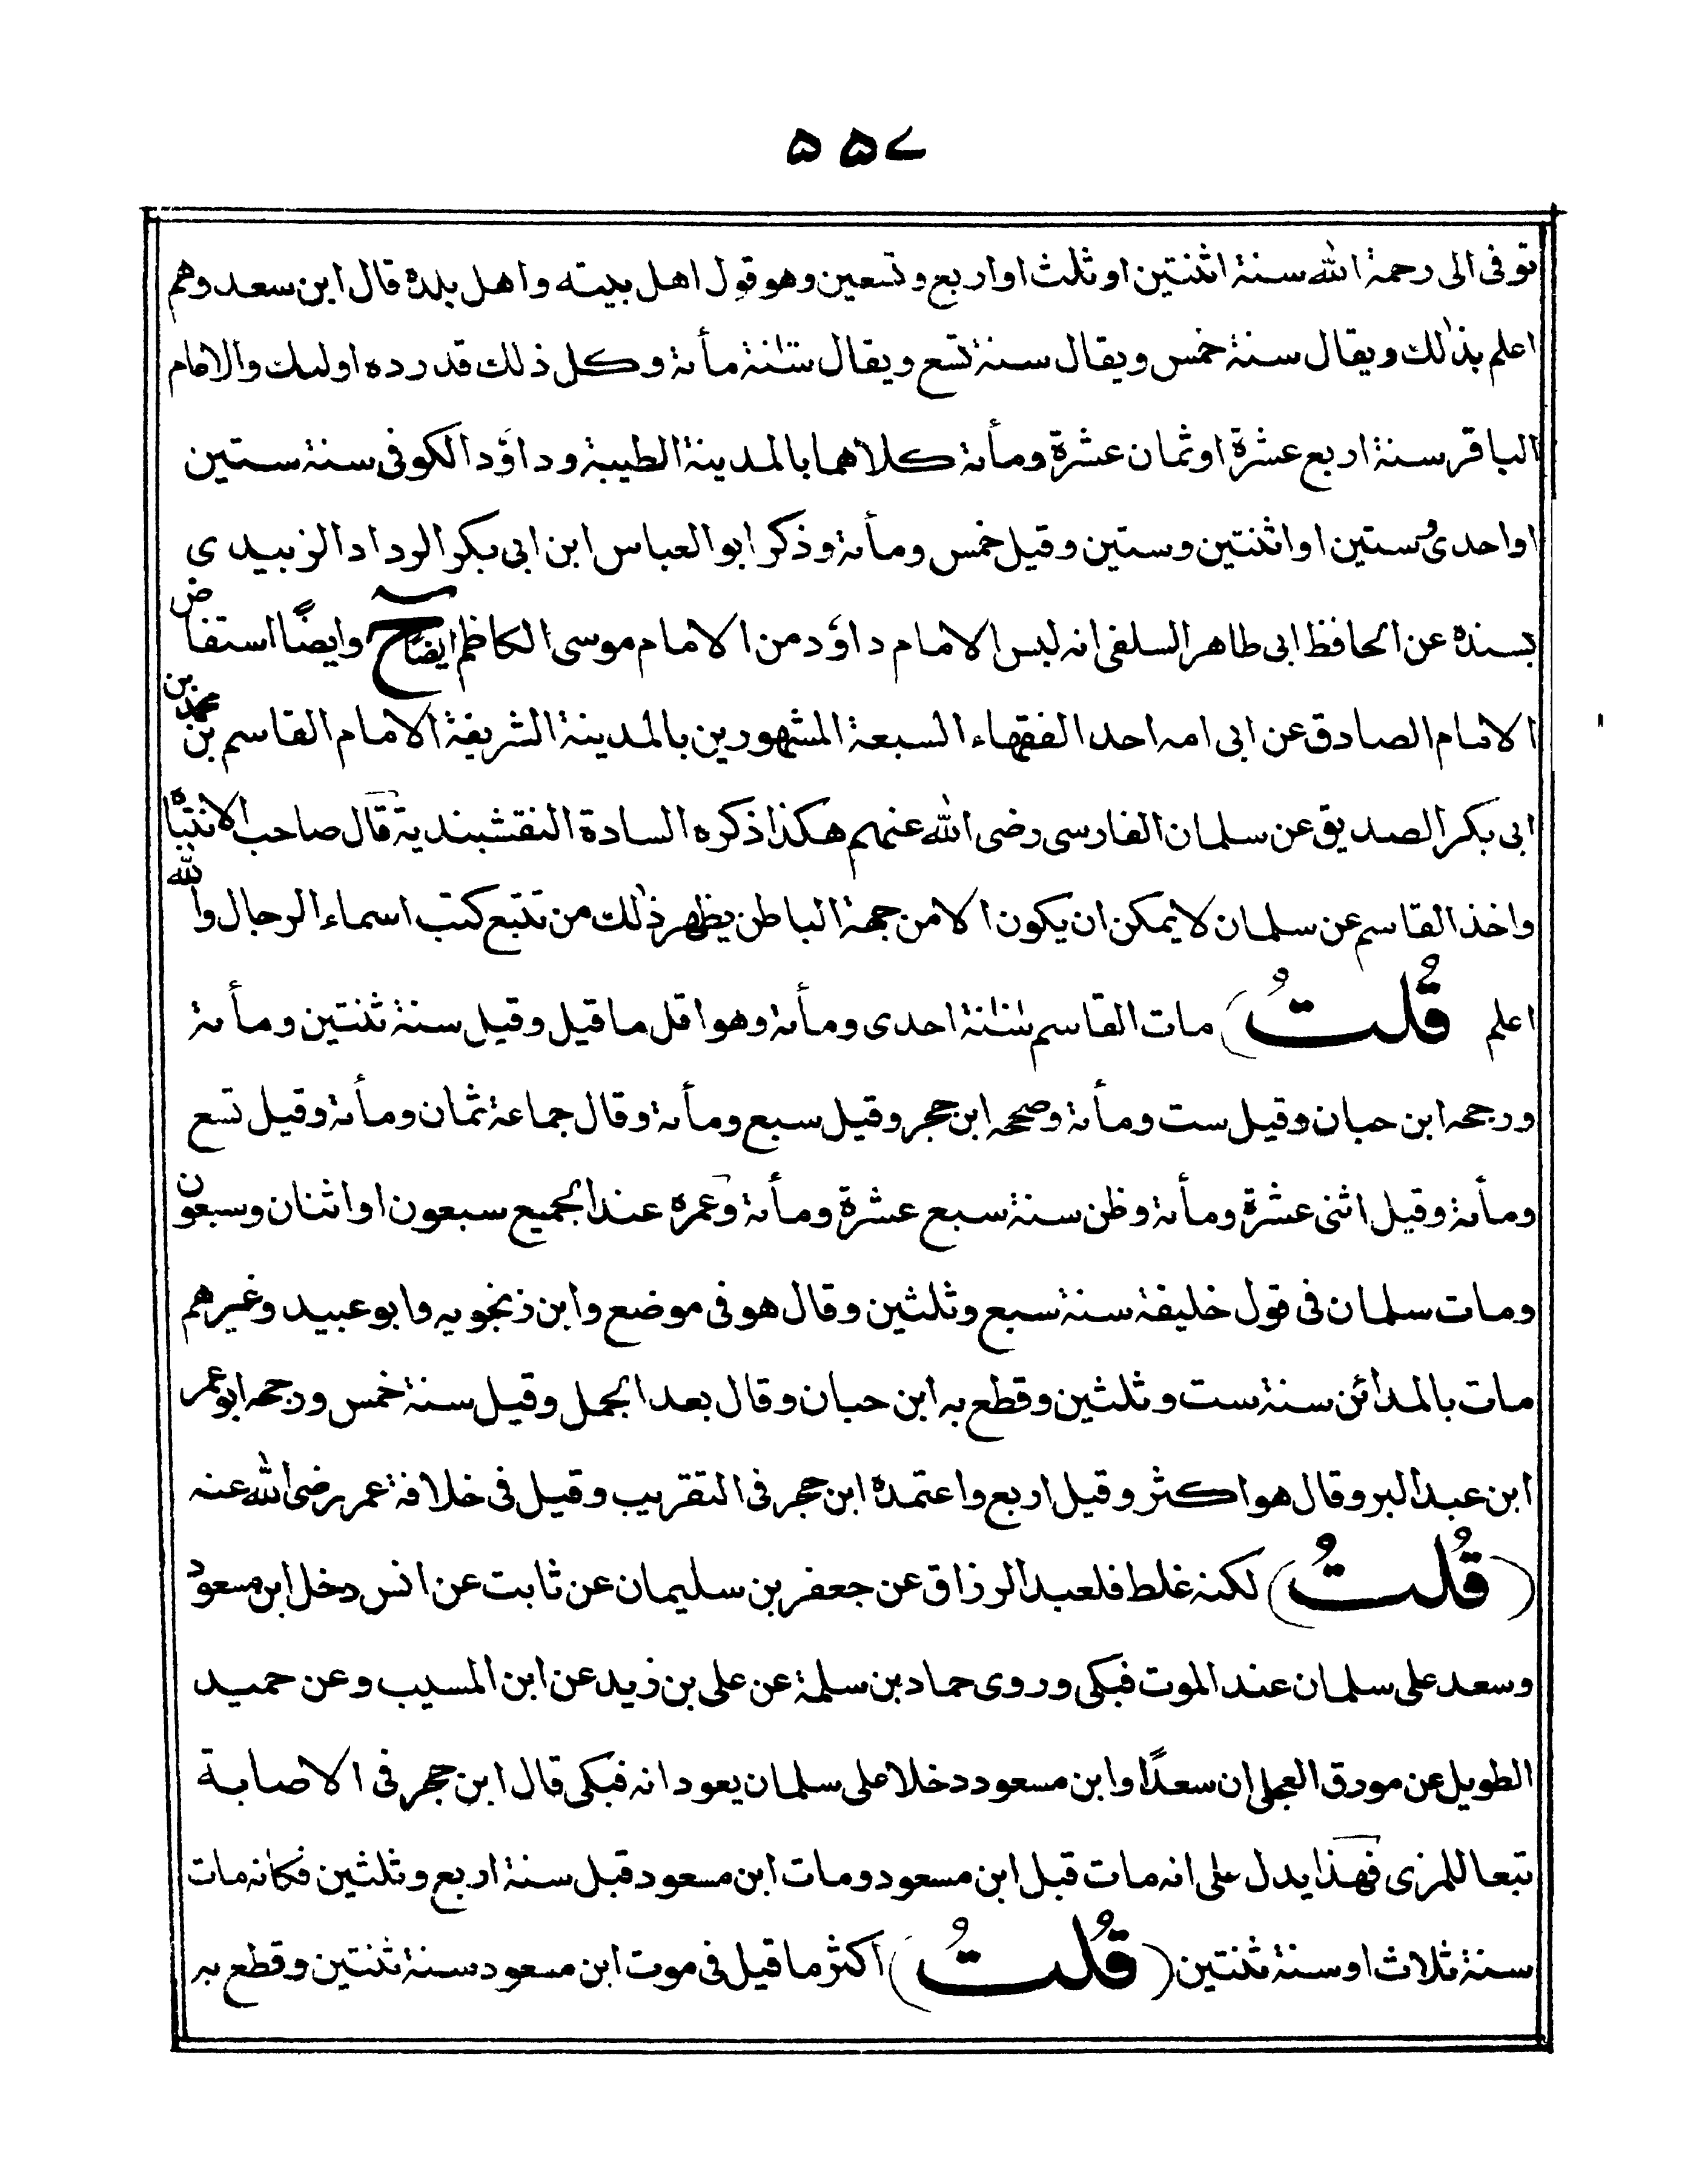 ۵۵۷
توفی الی رحمۃ اللہ سنۃ اثنتین او ثلث او اربع و تسعین وهو قول اهل بیته و اهل بلدہ قال ابن سعد وهم
اعلم بذٰلك ویقال سنۃ خمس ویقال سنۃ تسع ویقال سنۃ مأۃ وکل ذلك قد ردہ اولٰئك والامام
الباقر سنۃ اربع عشرۃ او ثمان عشرۃ ومأۃ کلاهما بالمدینۃ الطیبۃ وداؤد الکوفی سنۃ ستین
او احدیٰ وستین او اثنتین وستین وقیل خمس ومأۃ وذکر ابو العباس ابن ابی بکر الرداد الزبیدی
بسندہ عن الحافظ ابی طاهر السلفی انه لبس الامام داوٗد من الامام موسی الکاظم ایضًا ح وایضًا استفاض
الامام الصادق عن ابی امه احد الفقهاء السبعۃ المشهورین بالمدینۃ الشریفۃ الامام القاسم بن محمد بن
ابی بکر الصدیق عن سلمان الفارسی رضی اللہ عنهم هکذا ذکرہ السادۃ النقشبندیۃ قال صاحب الانتباہ
واخذ القاسم عن سلمان لا یمکن ان یکون الا من جهۃ الباطن یظهر ذٰلك من تتبع کتب اسماء الرجال واللہ
اعلم قُلتُ) مات القاسم سنۃ احدی ومأۃ وهو اقل ما قیل وقیل سنۃ ثنتین ومأۃ
ورجحه ابن حبان وقیل ست ومأۃ وصححه ابن حجر وقیل سبع ومأۃ وقال جماعۃ ثمان ومأۃ وقیل تسع
ومأۃ وقیل اثنی عشرۃ ومأۃ وظن سنۃ سبع عشرۃ ومأۃ وعمرہ عند الجمیع سبعون او اثنان وسبعون
ومات سلمان فی قول خلیفۃ سنۃ سبع وثلثین وقال هو فی موضع وابن زنجویه وابو عبید وغیرهم
مات بالمدائن سنۃ ست وثلثین وقطع به ابن حبان وقال بعد الجمل وقیل سنۃ خمس ورجحه ابو عمر
ابن عبد البر وقال هو اکثر وقیل اربع واعتمدہ ابن حجر فی التقریب وقیل فی خلافۃ عمر رضی اللہ عنه
(قُلتُ) لکنه غلط فلعبد الرزاق عن جعفر بن سلیمان عن ثابت عن انس دخل ابن مسعود
وسعد علی سلمان عند الموت فبکی وروی حماد بن سلمۃ عن علی بن زید عن ابن المسیب وعن حمید
الطویل عن مورق العجلی ان سعدًا وابن مسعود دخلا علی سلمان یعودانه فبکی قال ابن حجر فی الاصابۃ
تبعا للمزی فهذا یدل علی انه مات قبل ابن مسعود ومات ابن مسعود قبل سنۃ اربع وثلثین فکانه مات
سنۃ ثلاث او سنۃ ثنتین (قُلتُ) اکثر ما قیل فی موت ابن مسعود سنۃ ثنتین وقطع به